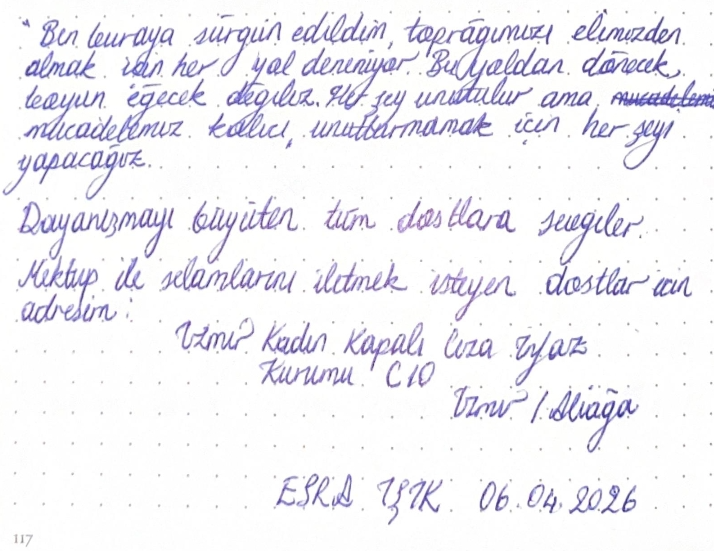 "Ben buraya sürgün edildim, toprağımızı elimizden
almak için her yol deneniyor. Bu yoldan dönecek,
boyun eğecek değiliz. Her şey unutulur ama mücadelemiz
mücadelemiz kalıcı, unutturmamak için her şeyi
yapacağız.
Dayanışmayı büyüten tüm dostlara sevgiler.
Mektup ile selamlarını iletmek isteyen dostlar için
adresim:
İzmir Kadın Kapalı Ceza İnfaz
Kurumu C10
İzmir / Aliağa
ESRA IŞIK 06.04.2026
117